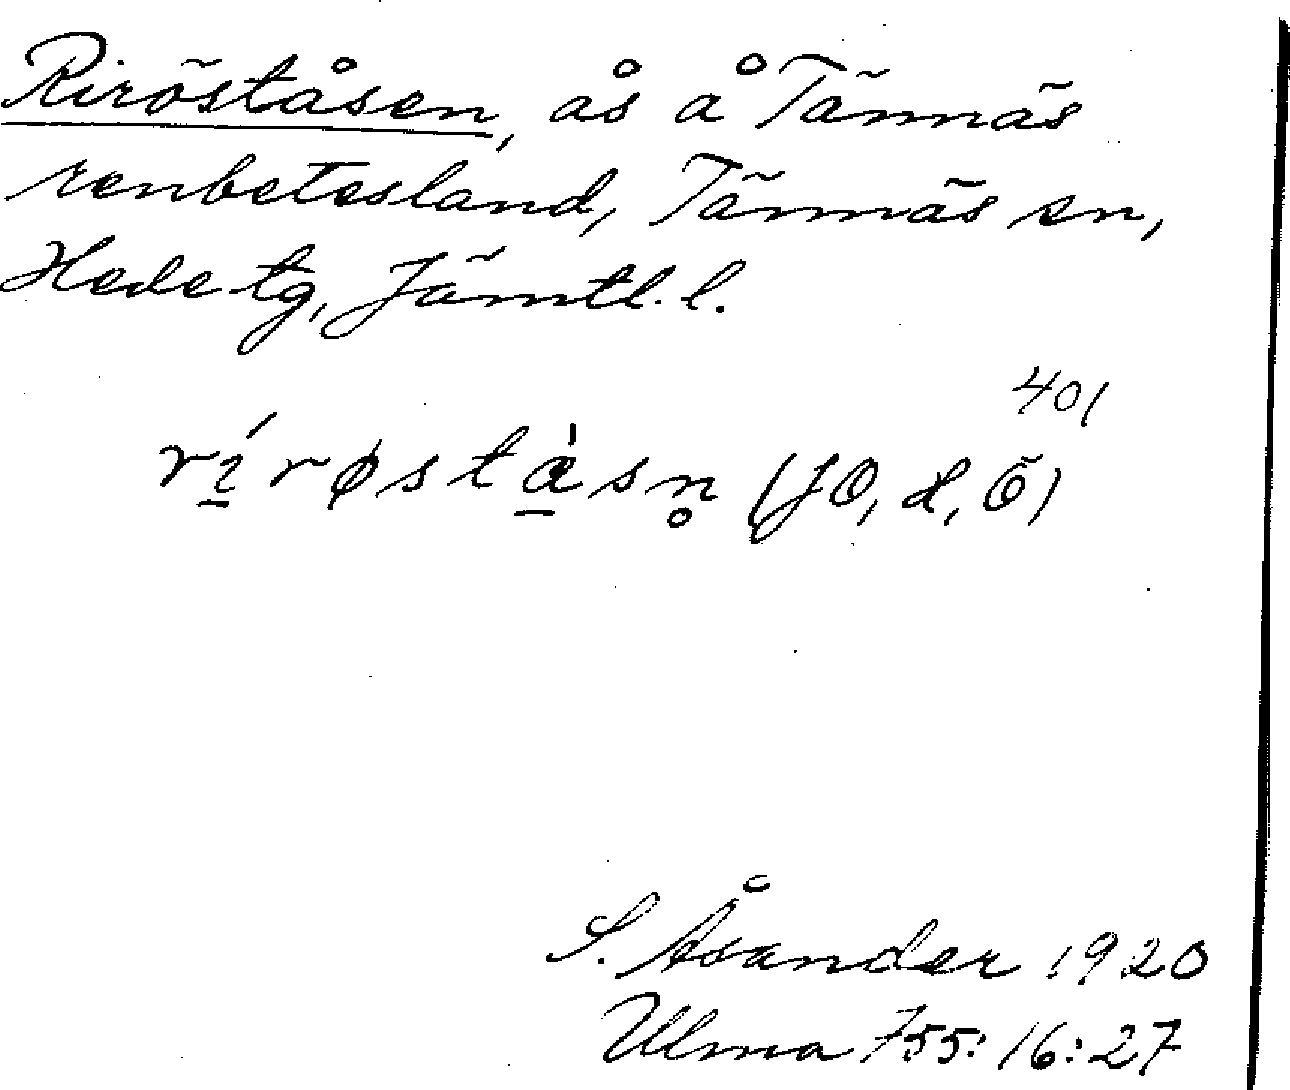 Riröståsen, ås å Tännäs
renbetesland, Tännäs sn,
Hede tg, Jämtl. l.
401
rírøstàsn̥ (JO, H, Ö)
S. Åsander 1920
Ulma 755:16:27